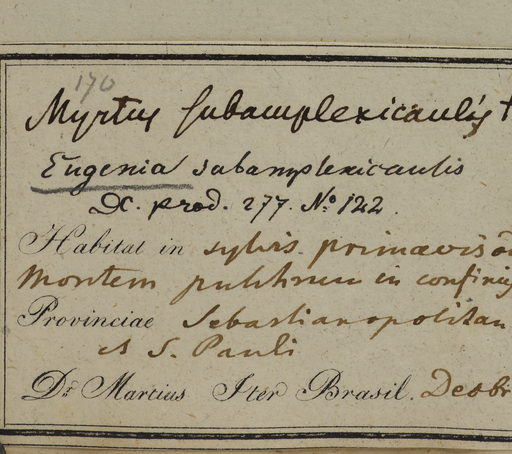 170
Myrtus subamplexicaulis †
Eugenia subamplexicaulis
DC. prod. 277. No. 122.
Habitat in sylvis primaevis ad
Montem pulchrum in confiniis
Provinciae Sebastianopolitan
et S. Pauli
Dr. Martius Iter Brasil. Decbr